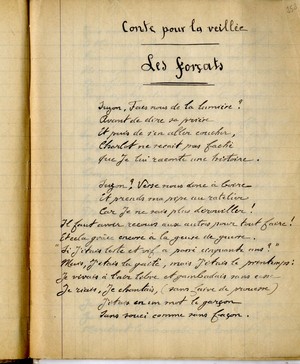 Conte pour la veillée
Les forçats
Suzon, Fais nous de la lumière !
Avant de dire sa prière
Et puis de s'en aller coucher,
Charlot ne serait pas faché
Que Je lui raconte une histoire.
Suzon ! Verse nous donc à boire
Et prends ma pipe au ratelier
Car Je ne sais plus
Il faut avoir recours aux autres pour tout faire !
Et cela grâce encore à la gueuse de guerre.
Si J'étais leste et vif a
Mieux, J'étais la gaîté, mais J'étais le printemps !
Je vivais à l'air libre et
Je riais, Je chantais, (sans
J'étais en un mot le garçon
Sans souci comme sans façon.